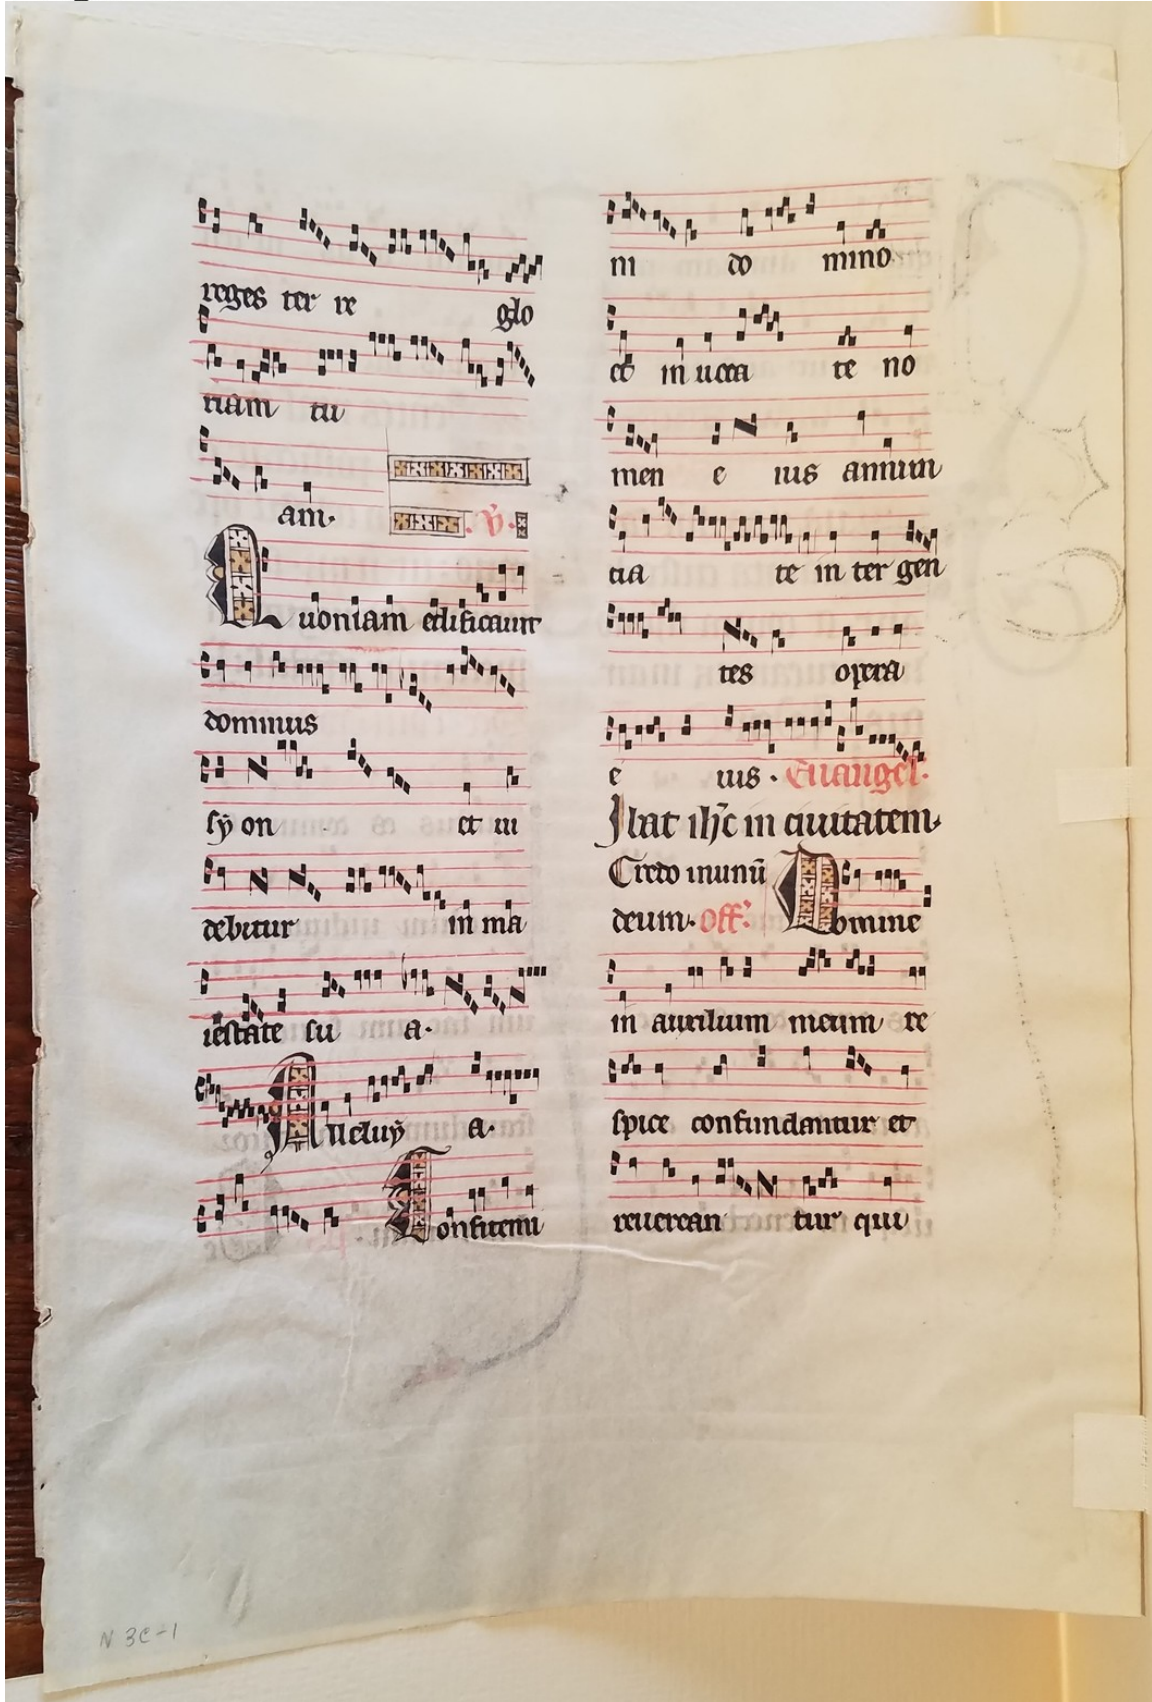 reges ter re glo
riam tu
am.
. V̄.
Quoniam edificauit
dominus
sẏ on et ui
debitur in ma
iestate su a.
Alleluẏ a.
Confitemi
ni do mino
et inuoca te no
men e ius annun
cia te in ter gen
tes opera
e ius. Euangel.
Ibat ih̄c in ciuitatem.
Credo inunū
deum. off̄. Domine
in auxilium meum re
spice confundantur et
reuerean tur qui
N 3C-1